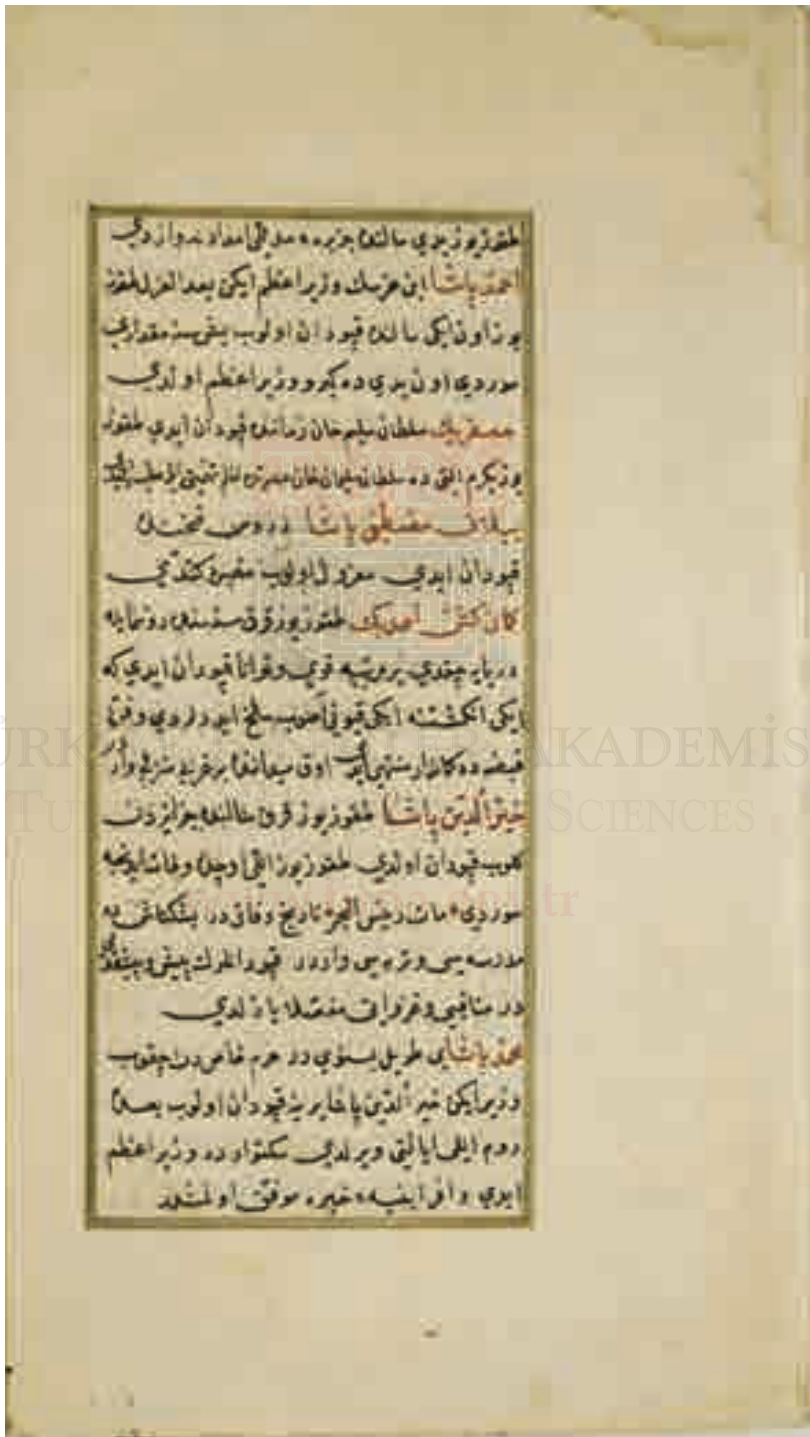 طقوز یوز یدی سالنده جزیره مدللی امدادنه واردی
احمد پاشا ابن هرسك وزیر اعظم ایکن بعد العزل طقوز
یوز اون ایکی سالنده قپودان اولوب بش سنه مقداری
سوردی اون یدی ده کیرو وزیر اعظم اولدی
جعفر بك سلطان سلیم خان زماننده قپودان ایدی طقوز
یوز یکرم التی ده سلطان سلیمان خان
پیلاق مصطفی پاشا ردوس فتحنده
قپودان ایدی معزول اولوب مصره کتدی
کمان کش احمد بك طقوز یوز قرق سنه سنده دونما ایله
دریایه چقدی بر مرتبه قوی وتوانا قپودان ایدی که
ایکی انکشتله ایکی قیونی آصوب سلخ ایدرلردی وفن
قبضه ده کماندار منتهی ایدی اوق میداننده بر غریب منزلی وار
خیر الدین پاشا طقوز یوز قرق سالنده جزایردن
کلوب قپودان اولدی طقوز یوز اللی اوچده وفات ایدنجه
سوردی مات رئیس البحر تاریخ وفاتی در بشکطاش ده
مدرسه سی وتربه سی واردر قپودانلرك
در مناقبی وغزواتی مفصلا یازلدی
محمد پاشای طویل بسنوی در حرم خاص دن چقوب
وزیر ایکن خیر الدین پاشا یرینه قپودان اولوب بعده
روم ایلی ایالتی ویرلدی سکتوارده وزیر اعظم
ایدی وافر ابنیه خیره موفق اولمشدر
TÜRK
AKADEMİS
SCIENCES